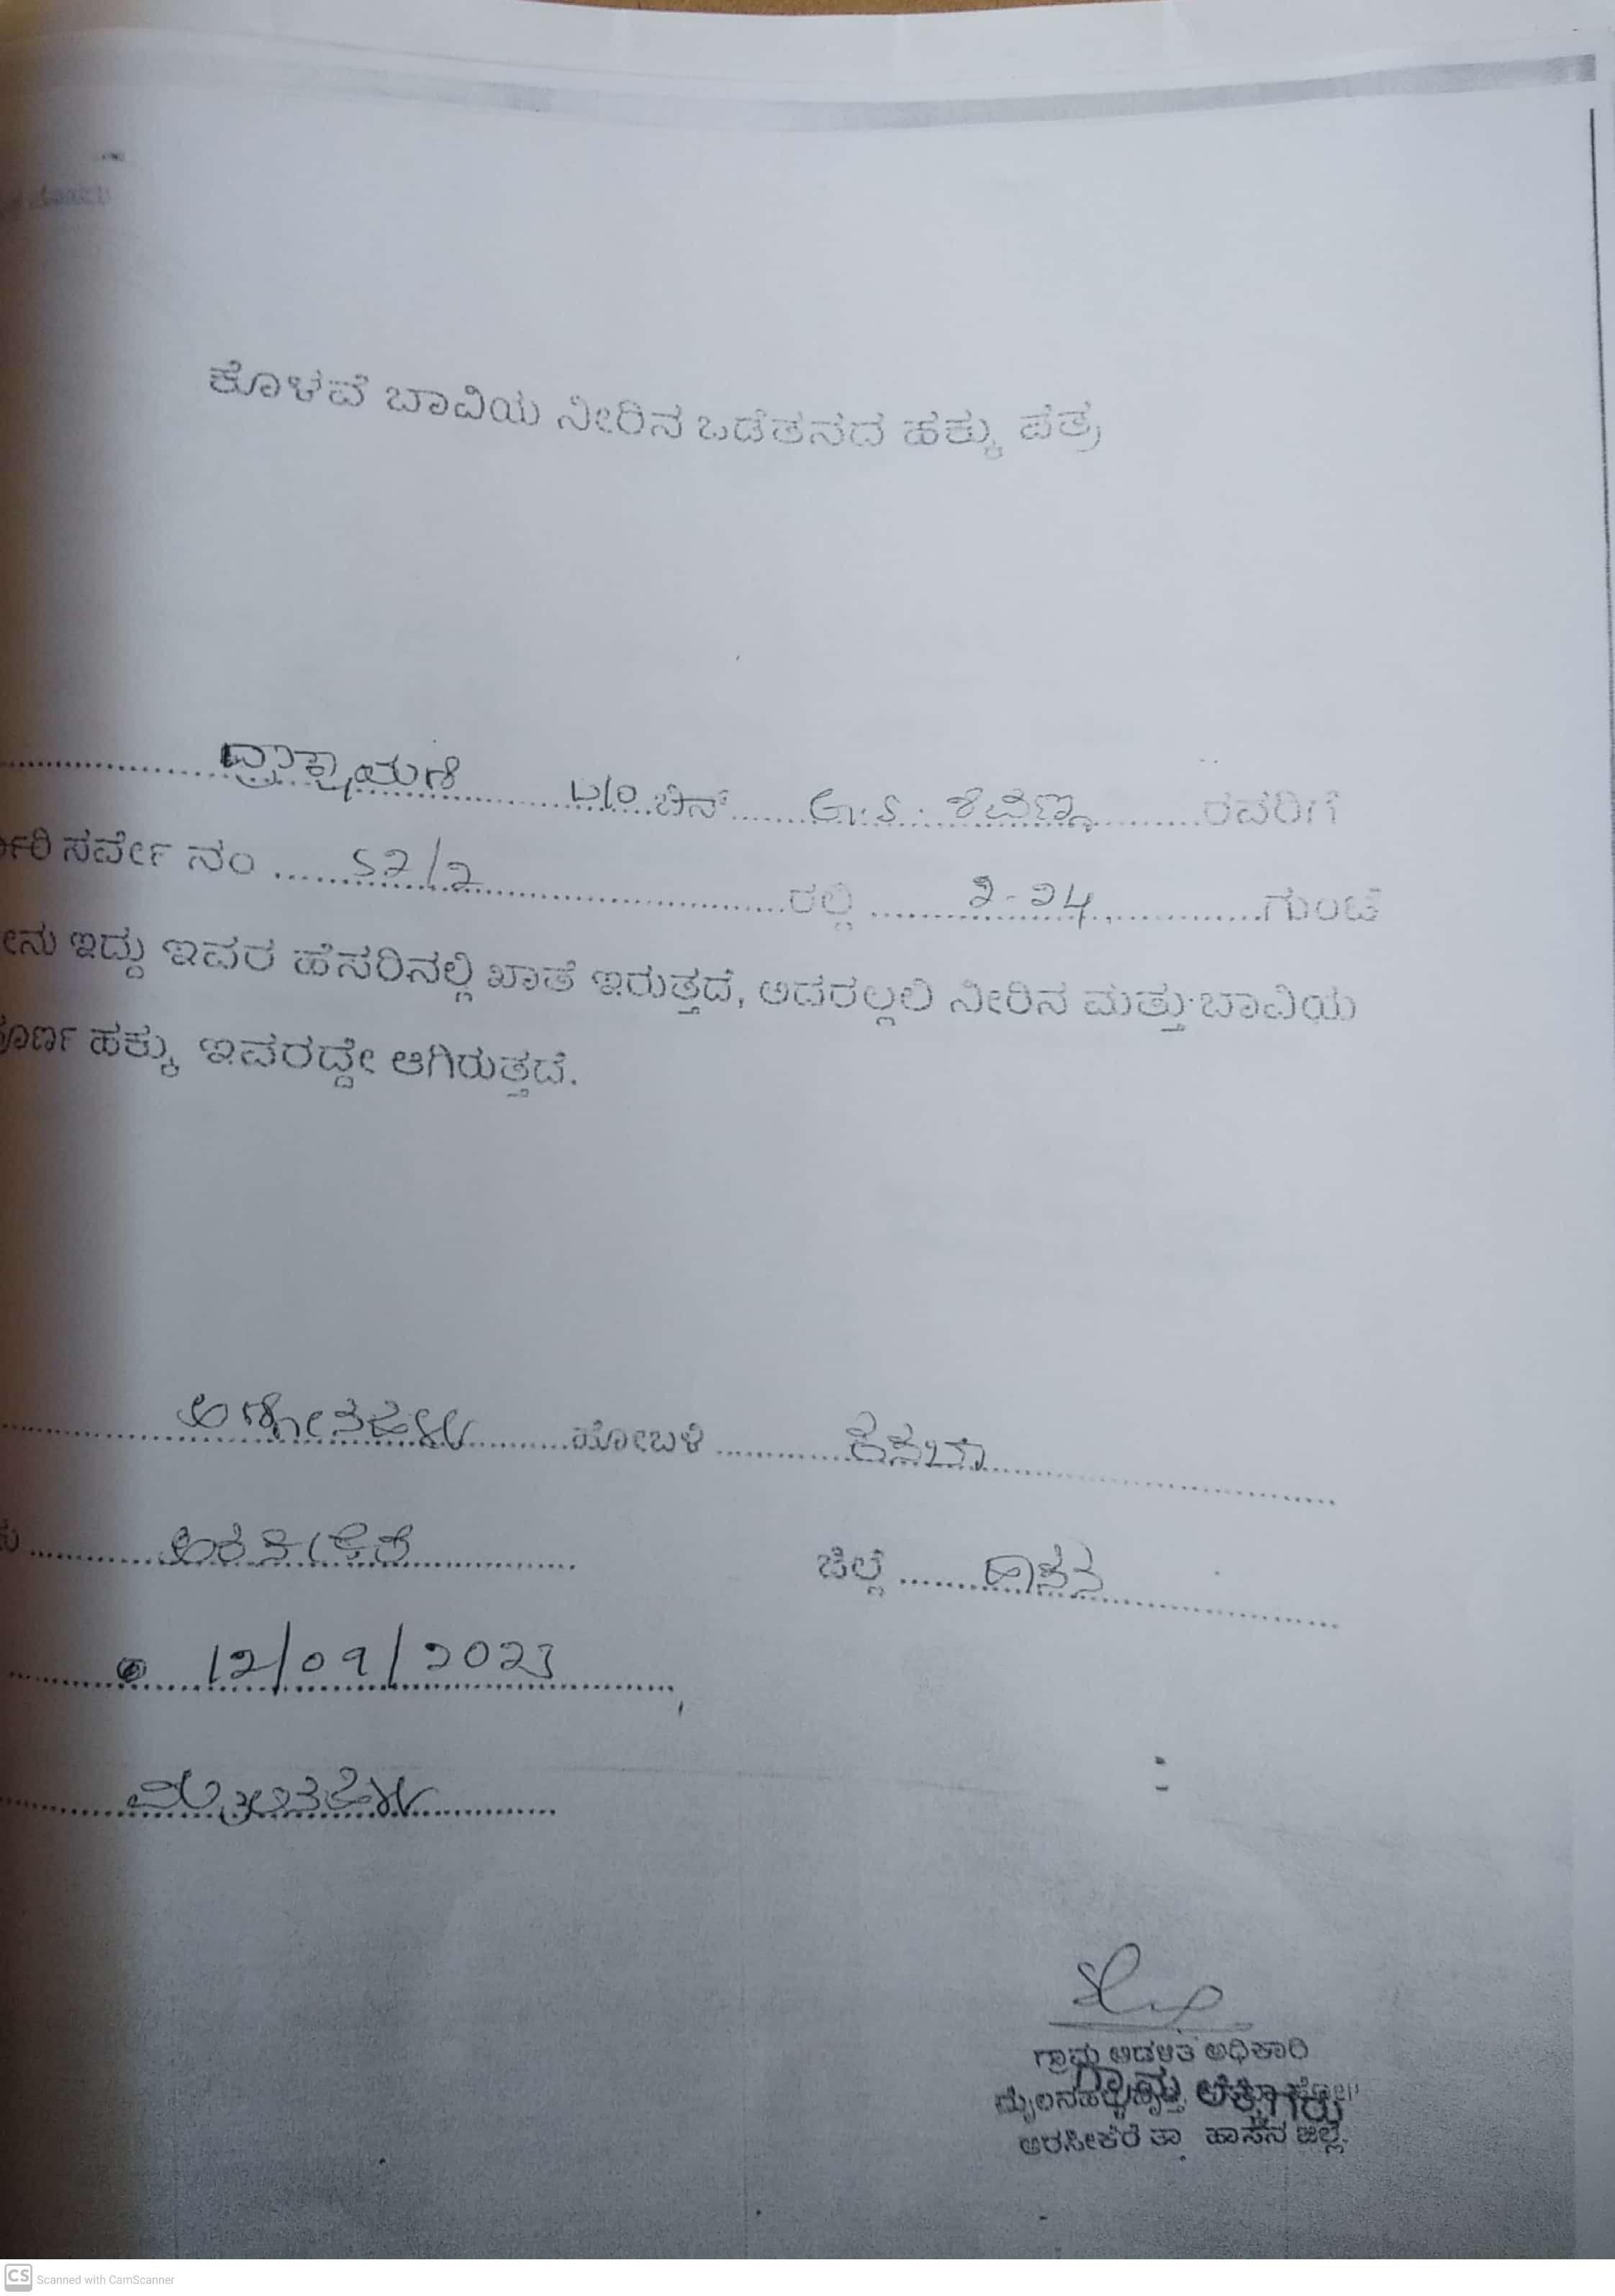 ಕೊಳವೆ ಬಾವಿಯ ನೀರಿನ ಒಡೆತನದ ಹಕ್ಕು ಪತ್ರ
ದ್ರಾಕ್ಷಾಯಣಿ ಬಿನ್ ಶಿವಣ್ಣ ರವರಿಗೆ
ಸರ್ವೇ ನಂ 52/2 ರಲ್ಲಿ 2-24 ಗುಂಟೆ
ಇದ್ದು ಇವರ ಹೆಸರಿನಲ್ಲಿ ಖಾತೆ ಇರುತ್ತದೆ, ಅದರಲ್ಲಲಿ ನೀರಿನ ಮತ್ತು ಬಾವಿಯ
ಹಕ್ಕು ಇವರದ್ದೇ ಆಗಿರುತ್ತದೆ.
ಹೋಬಳಿ ಕಸಬಾ
ಅರಸೀಕೆರೆ ಜಿಲ್ಲೆ ಹಾಸನ
12/09/2023
ಮೈಲನಹಳ್ಳಿ
ಗ್ರಾಮ ಆಡಳಿತ ಅಧಿಕಾರಿ
ಗ್ರಾಮ ಲೆಕ್ಕಿಗರು
ಅರಸೀಕೆರೆ ತಾ. ಹಾಸನ ಜಿಲ್ಲೆ.
CS Scanned with CamScanner